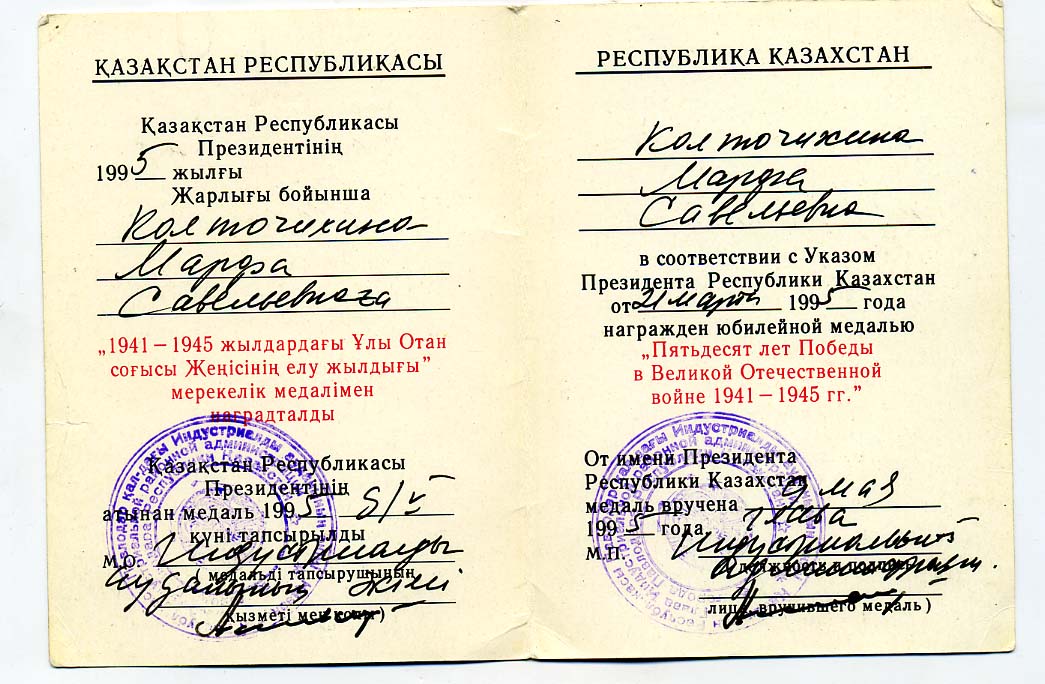 ҚАЗАҚСТАН РЕСПУБЛИКАСЫ
Қазақстан Республикасы
Президентінің
1995 жылғы
Жарлығы бойынша
Колточихина
Марфа
Савельевнаға
„1941 – 1945 жылдардағы Ұлы Отан
соғысы Жеңісінің елу жылдығы”
мерекелік медалімен
наградталды
Қазақстан Республикасы
Президентінің
атынан медаль 1995 9/V
күні тапсырылды
М.О. Индустриалды
( медальді тапсырушының
әкімі
қызметі мен қолы )
РЕСПУБЛИКА КАЗАХСТАН
Колточихина
Марфа
Савельевна
в соответствии с Указом
Президента Республики Казахстан
от 21 марта 1995 года
награжден юбилейной медалью
„Пятьдесят лет Победы
в Великой Отечественной
войне 1941 – 1945 гг.”
От имени Президента
Республики Казахстан
медаль вручена 9 мая
1995 года. глава
М.П. Индустриальной
(должность и подпись
лица, вручившего медаль )